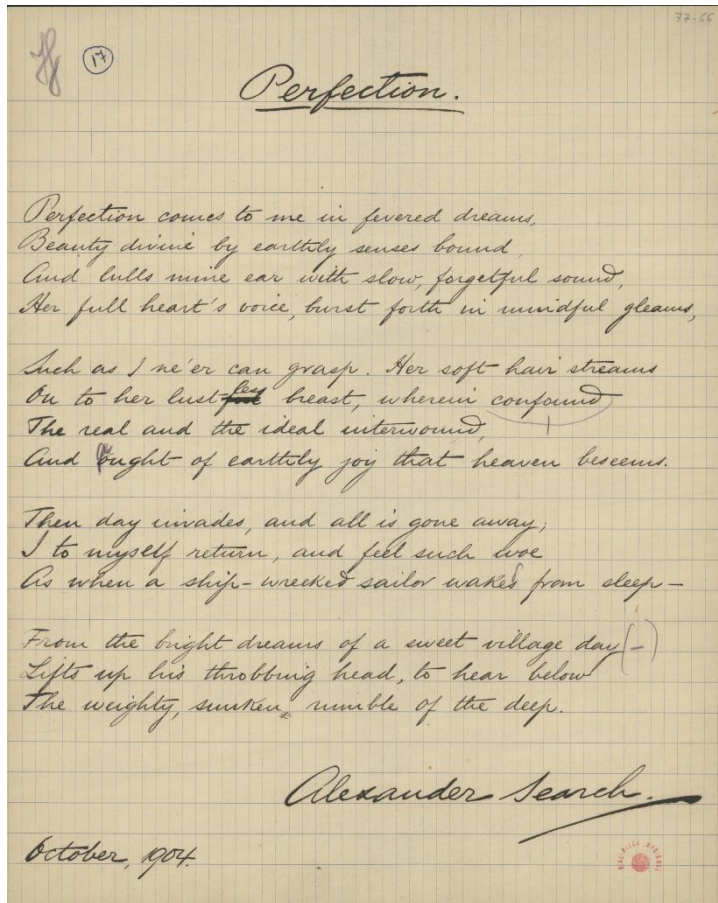 77-66
17
Perfection.
Perfection comes to me in fevered dreams,
Beauty divine by earthly senses bound,
And lulls mine ear with slow, forgetful sound,
Her full heart's voice, burst forth in mindful gleams,
Such as I ne'er can grasp. Her soft hair streams
On to her lustless breast, wherein confound
The real and the ideal interwound,
And aught of earthly joy that heaven beseems.
Then day invades, and all is gone away;
I to myself return, and feel such woe
As when a ship-wrecked sailor wakes from sleep -
From the bright dreams of a sweet village day (-)
Lifts up his throbbing head, to hear below
The weighty, sunken rumble of the deep.
Alexander Search.
October, 1904.